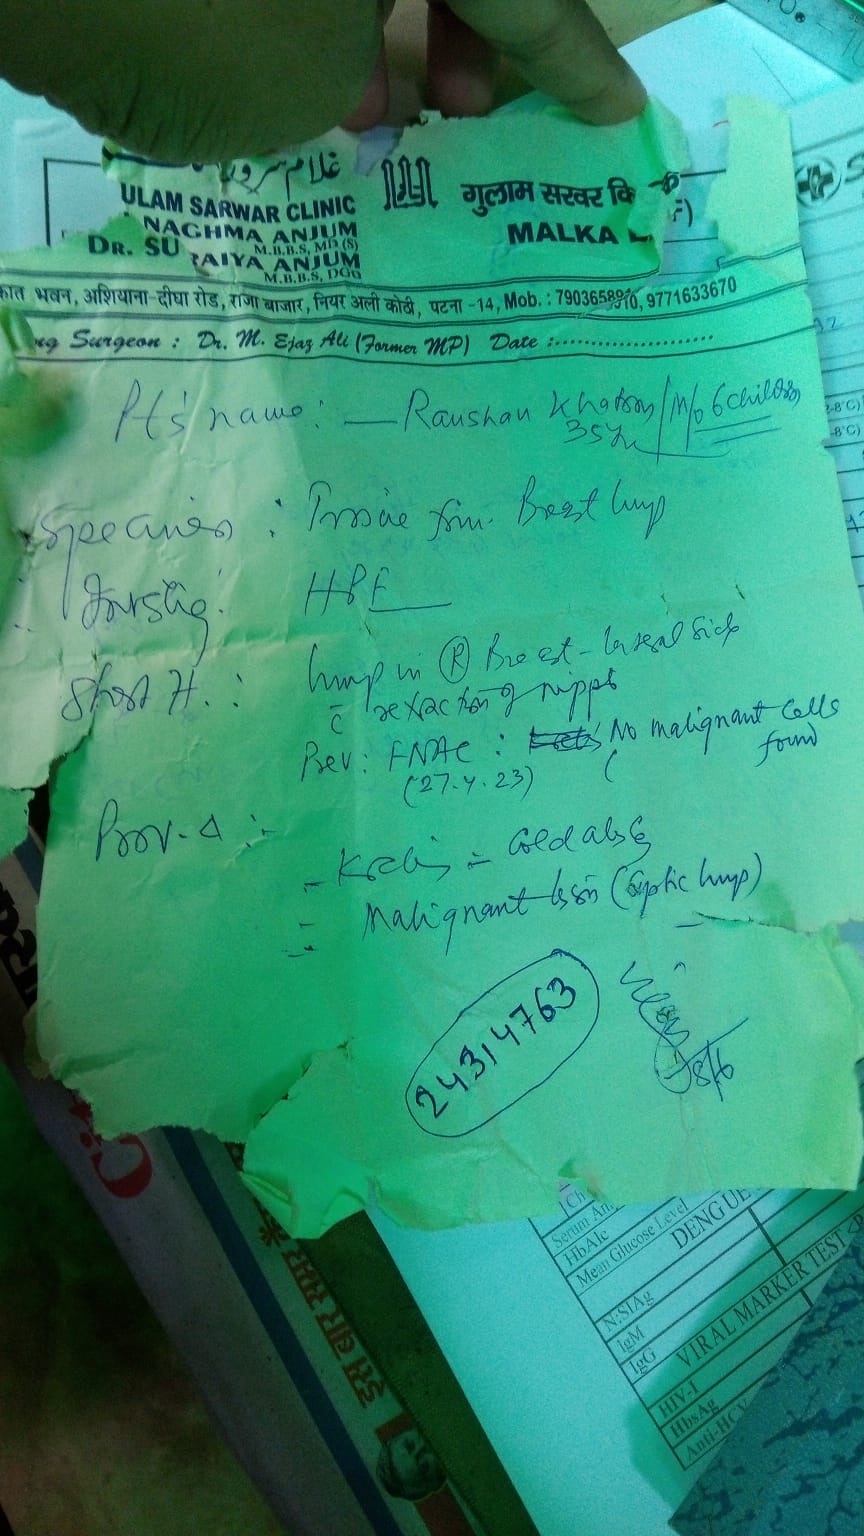 غلام سرور
ULAM SARWAR CLINIC
NAGHMA ANJUM
M.B.B.S, MD (S)
DR. SU RAIYA ANJUM
M.B.B.S, DGO
गुलाम सरवर कि
MALKA
भवन, अशियाना-दीघा रोड, राजा बाजार, नियर अली कोठी, पटना -14, Mob. : 9771633670
ng Surgeon : Dr. M. Ejaz Ali (Former MP) Date :
Pt's name : — Raushan Khatoon / M/o 6 children
35 yr
Specimen : Tissue from Breast lump
Investig : HPE
Short H. : lump in (R) Breast - lateral side
c̄ retraction of nipple
Prev : FNAC : No malignant cells found
(27.4.23)
Prov. Δ :-
- Koch's = Cold abs
- Malignant lesion ( lump)
24314763
18/6
S
Serum
HbA1c
Mean Glucose Level
DENGUE
NSIAg
IgM
IgG
VIRAL MARKER TEST
HIV-I
HbsAg
Anti-HCV
इस बार